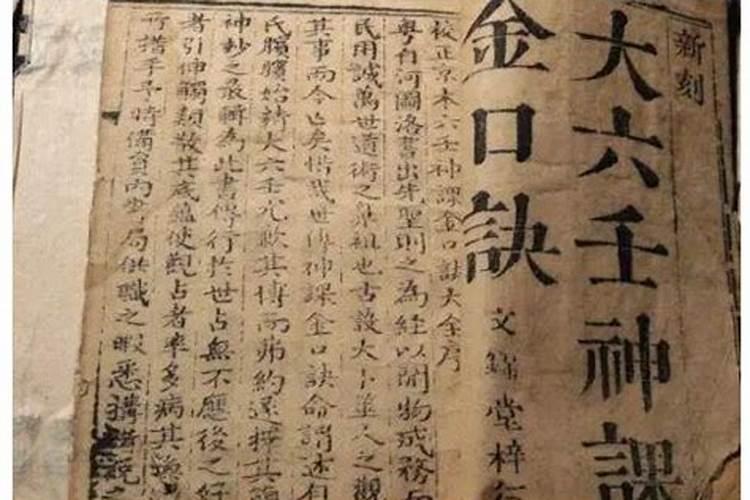 新刻
大六壬神課
金口訣
文錦堂梓
校正京本六壬神課金口訣大全序
粤自河圖洛書出先聖則之為經以開物成務
民用誠萬世道術之鼻祖也古設大卜筮人之觀
其事而今亡矣惜哉世傳神課金口訣命謂述自
氏臏臏始辞大六壬冗歉其博而弗約遂擇其
神妙之最輯為此書傳行於世占無不應後之好
者引伸觸類散其底蘊使觀占者率多病其
所措手予時備員內步局供職之暇悉搆諸說